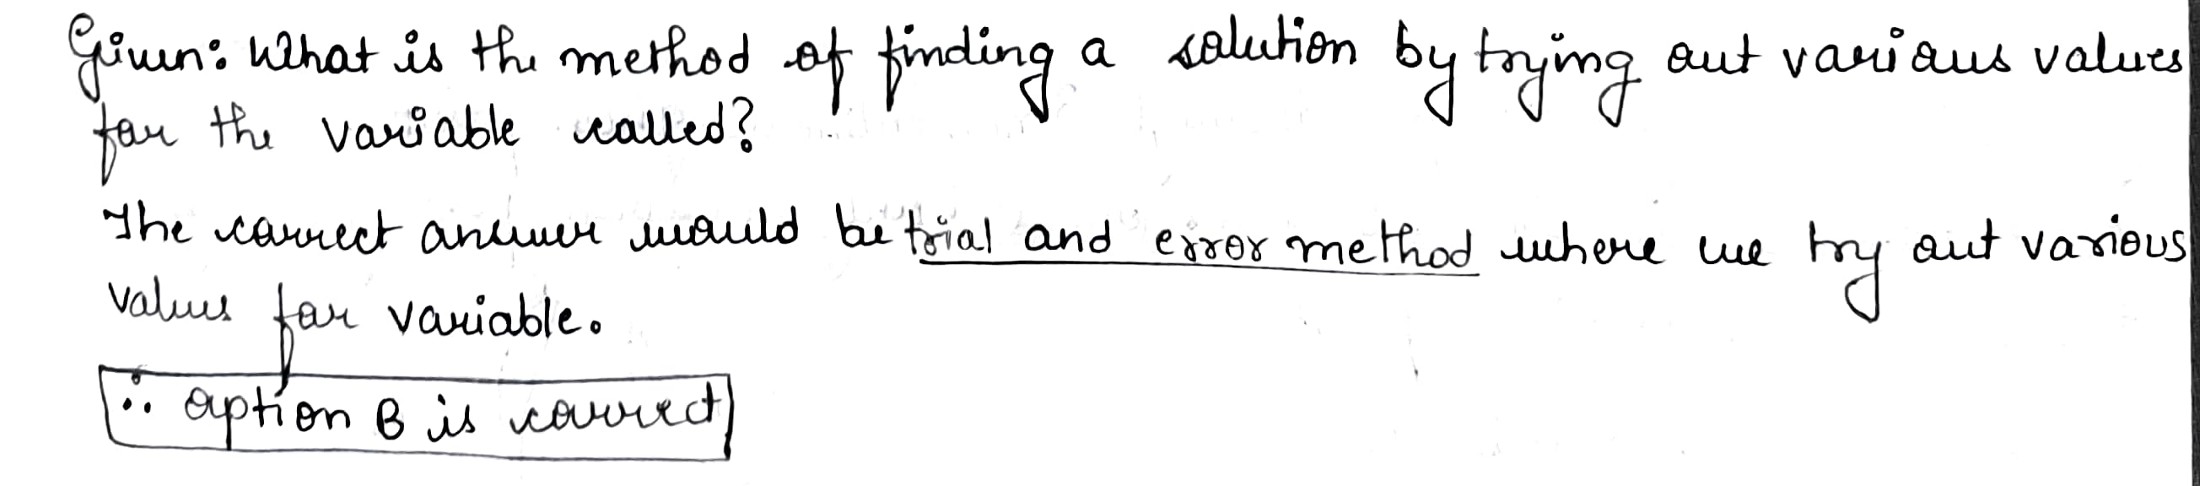 Given: What is the method of finding a solution by trying out various values
for the variable called?
The correct answer would be trial and error method where we try out various
values for variable.
∴ option B is correct